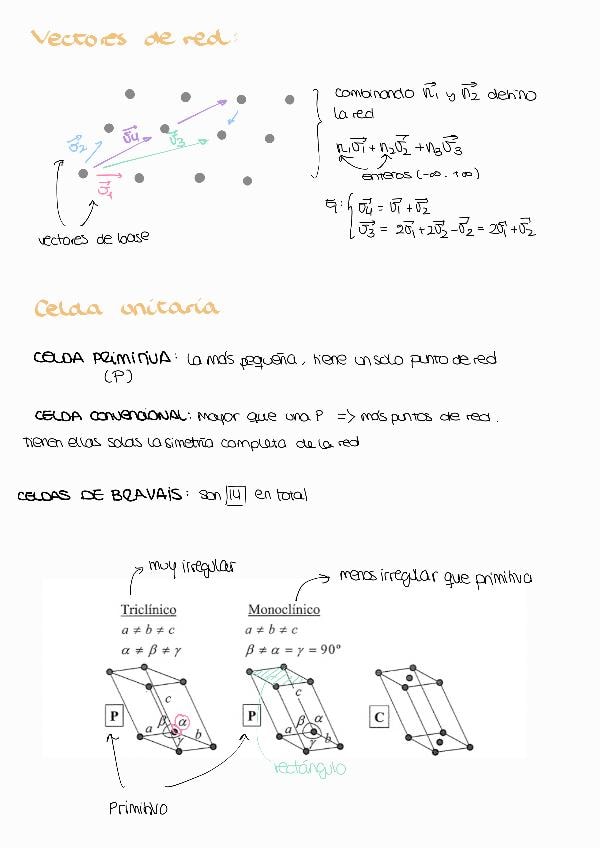 Vectores de red:
combinando n₁ y n₂ defino
la red
n₁v₁ + n₂v₂ + n₃v₃
enteros (-∞, +∞)
v₂
v₄
v₃
v₁
v₄ = v₁ + v₂
v₃ = 2v₁ + 2v₂ - v₂ = 2v₁ + v₂
vectores de base
Celda unitaria
CELDA PRIMITIVA: La más pequeña, tiene un solo punto de red
(P)
CELDA CONVENCIONAL: Mayor que una P => más puntos de red.
Tienen ellas solas la simetría completa de la red
CELDAS DE BRAVAIS: son 14 en total
muy irregular
menos irregular que primitiva
Triclínico Monoclínico
a ≠ b ≠ c a ≠ b ≠ c
α ≠ β ≠ γ β ≠ α = γ = 90º
c c
P β α P β α C
a γ b a γ b
rectángulo
Primitivo